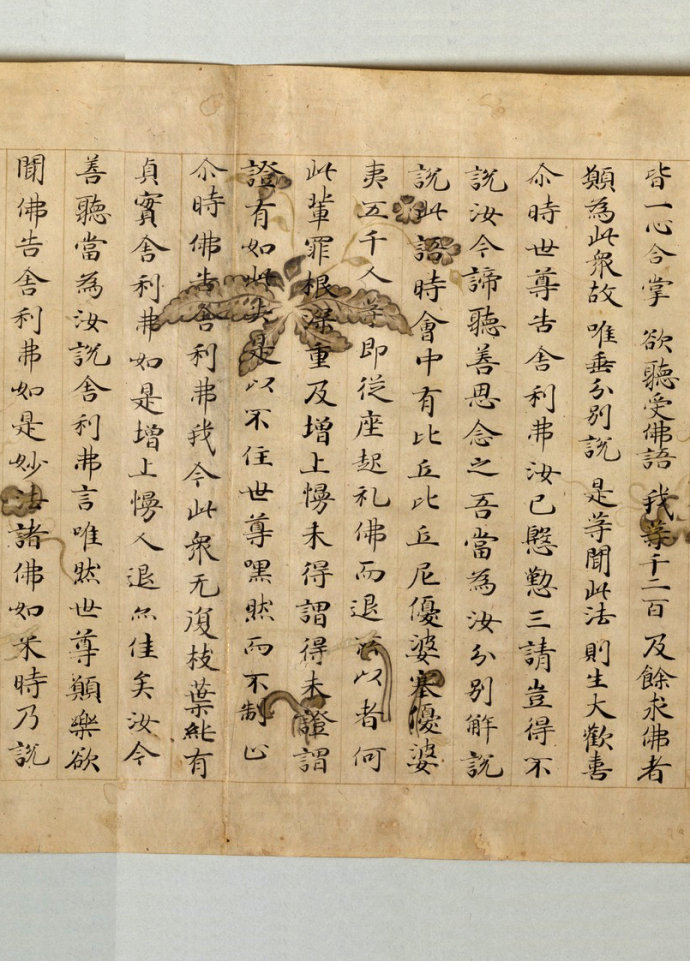 皆一心合掌 欲聽受佛語 我等千二百 及餘求佛者
願為此衆故 唯垂分別說 是等聞此法 則生大歡喜
尒時世尊告舍利弗汝已慇懃三請豈得不
說汝今諦聽善思念之吾當為汝分別解說
說此語時會中有比丘比丘尼優婆塞優婆
夷五千人等即從座起礼佛而退所以者何
此輩罪根深重及增上慢未得謂得未證謂
證有如此失是以不住世尊嘿然而不制止
尒時佛告舍利弗我今此衆无復枝葉純有
貞實舍利弗如是增上慢人退亦佳矣汝今
善聽當為汝說舍利弗言唯然世尊願樂欲
聞佛告舍利弗如是妙法諸佛如来時乃說